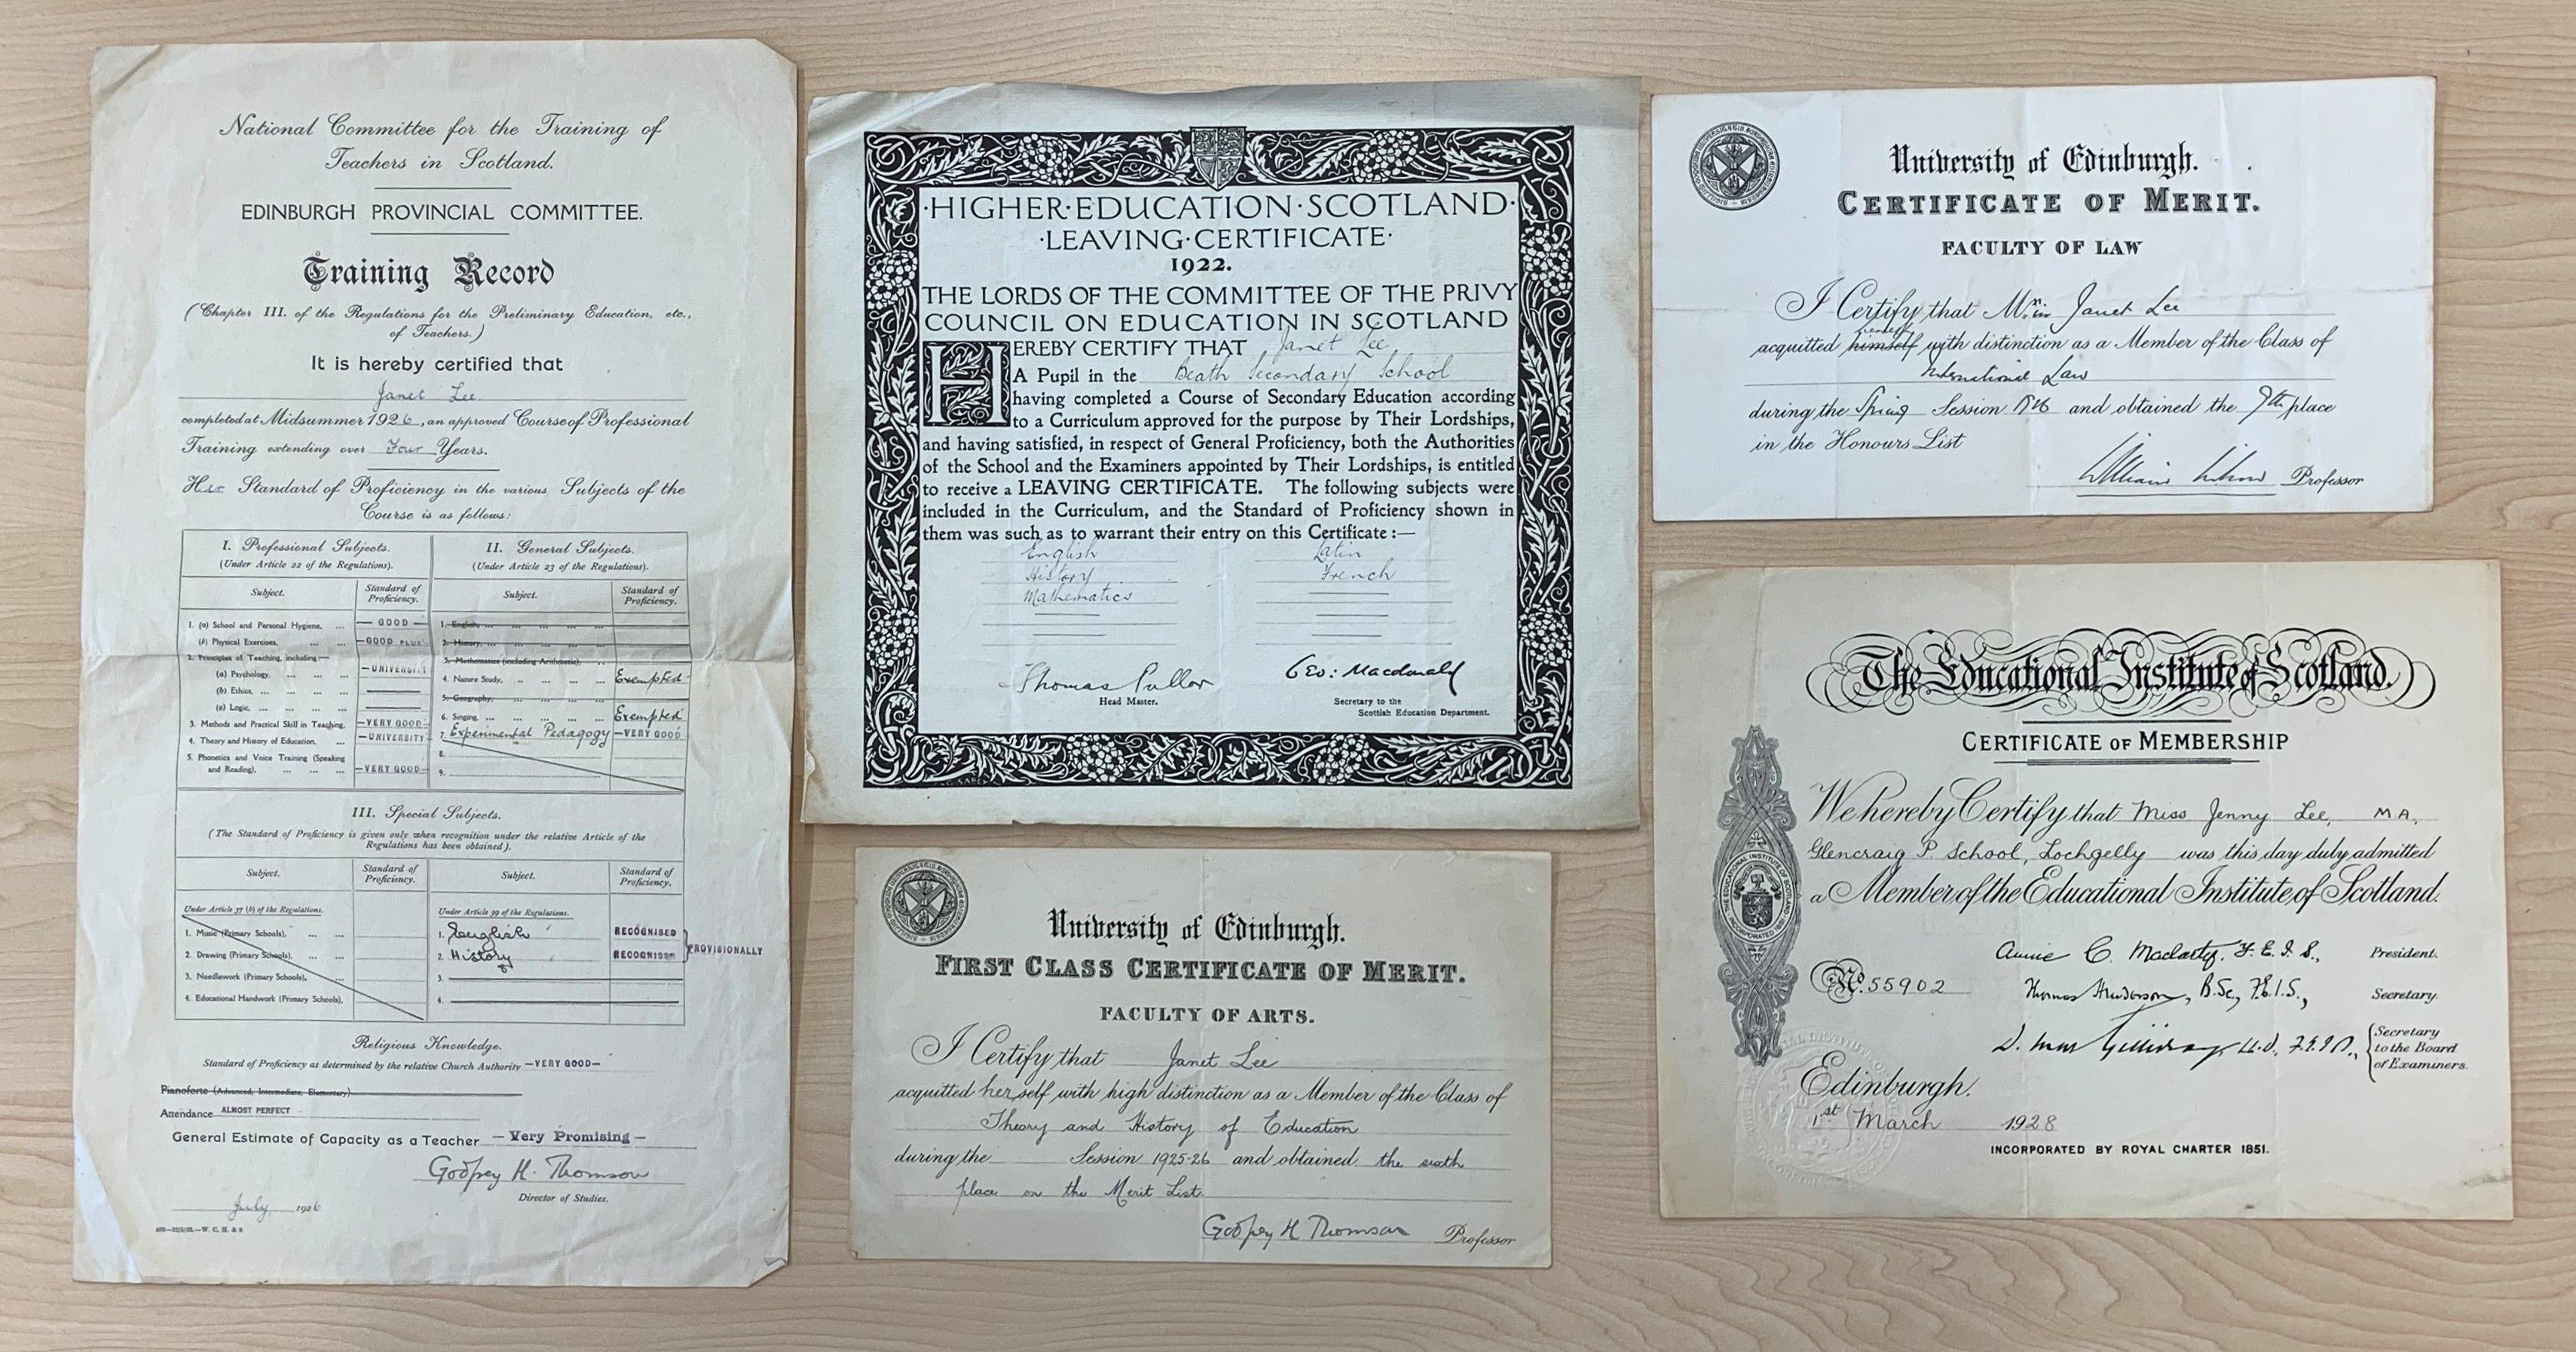 National Committee for the Training of
Teachers in Scotland.
EDINBURGH PROVINCIAL COMMITTEE.
Training Record
(Chapter III. of the Regulations for the Preliminary Education, etc.,
of Teachers.)
It is hereby certified that
Janet Lee.
completed at Midsummer 1926, an approved Course of Professional
Training extending over Four Years.
Her Standard of Proficiency in the various Subjects of the
Course is as follows:
I. Professional Subjects.
(Under Article 22 of the Regulations).
Subject. Standard of Proficiency.
1. (a) School and Personal Hygiene, ... — GOOD —
(b) Physical Exercises, ... ... —GOOD PLUS
2. Principles of Teaching, including:— —UNIVERSITY
(a) Psychology, ... ... ...
(b) Ethics, ... ... ... ...
(c) Logic, ... ... ... ...
3. Methods and Practical Skill in Teaching, —VERY GOOD—
4. Theory and History of Education, ... —UNIVERSITY—
5. Phonetics and Voice Training (Speaking
and Reading), ... ... ... —VERY GOOD—
II. General Subjects.
(Under Article 23 of the Regulations).
Subject. Standard of Proficiency.
1. English, ... ... ... ...
2. History, ... ... ... ...
3. Mathematics (including Arithmetic), ..
4. Nature Study, .. ... ... ... Exempted
5. Geography, ... ... ... ...
6. Singing, ... ... ... ... Exempted
7. Experimental Pedagogy —VERY GOOD
8.
9.
III. Special Subjects.
(The Standard of Proficiency is given only when recognition under the relative Article of the
Regulations has been obtained).
Subject. Standard of Proficiency. Subject. Standard of Proficiency.
Under Article 37 (b) of the Regulations.
1. Music (Primary Schools), ... ...
2. Drawing (Primary Schools), ... ...
3. Needlework (Primary Schools), ...
4. Educational Handwork (Primary Schools),
Under Article 39 of the Regulations.
1. English RECOGNISED
2. History RECOGNISED
PROVISIONALLY
3.
4.
Religious Knowledge.
Standard of Proficiency as determined by the relative Church Authority —VERY GOOD—
Pianoforte (Advanced, Intermediate, Elementary)
Attendance ALMOST PERFECT
General Estimate of Capacity as a Teacher — Very Promising —
Godfrey H. Thomson
Director of Studies.
July, 1926
·HIGHER·EDUCATION·SCOTLAND·
·LEAVING·CERTIFICATE·
1922.
THE LORDS OF THE COMMITTEE OF THE PRIVY
COUNCIL ON EDUCATION IN SCOTLAND
HEREBY CERTIFY THAT Janet Lee
A Pupil in the Beath Secondary School
having completed a Course of Secondary Education according
to a Curriculum approved for the purpose by Their Lordships,
and having satisfied, in respect of General Proficiency, both the Authorities
of the School and the Examiners appointed by Their Lordships, is entitled
to receive a LEAVING CERTIFICATE. The following subjects were
included in the Curriculum, and the Standard of Proficiency shown in
them was such as to warrant their entry on this Certificate:—
English Latin
History French
Mathematics
Thomas Geo: Macdonald
Head Master. Secretary to the
Scottish Education Department.
University of Edinburgh.
FIRST CLASS CERTIFICATE OF MERIT.
FACULTY OF ARTS.
I Certify that Janet Lee
acquitted herself with high distinction as a Member of the Class of
Theory and History of Education
during the Session 1925-26 and obtained the sixth
place on the Merit List.
Godfrey H Thomson Professor
University of Edinburgh.
CERTIFICATE OF MERIT.
FACULTY OF LAW
I Certify that Miss Janet Lee
herself
acquitted himself with distinction as a Member of the Class of
International Law
during the Spring Session 1926 and obtained the 9th place
in the Honours List
William Professor
The Educational Institute of Scotland.
CERTIFICATE OF MEMBERSHIP
We hereby Certify that Miss Jenny Lee, MA,
Glencraig P. School, Lochgelly was this day duly admitted
a Member of the Educational Institute of Scotland.
Annie C. F.E.I.S., President.
No. 55902
Thomas Henderson, B.Sc, F.E.I.S., Secretary.
Secretary
to the Board
of Examiners.
Edinburgh.
1st March 1928
INCORPORATED BY ROYAL CHARTER 1851.